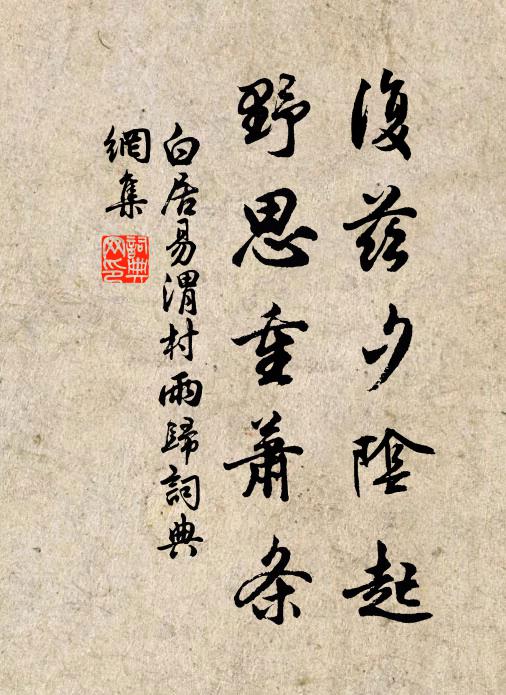 復茲夕陰起
野思重蕭条
白居易渭村雨歸詞典
網集
詞典网印